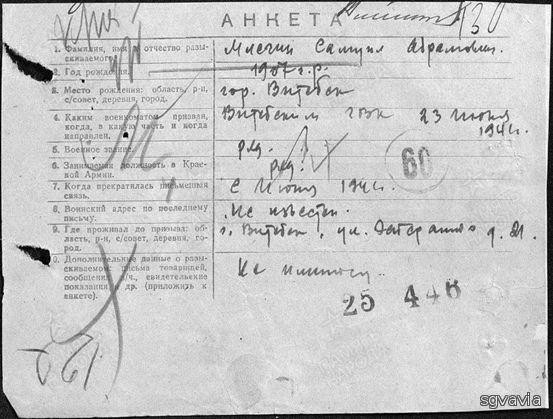 АНКЕТА
130
1. Фамилия, имя, отчество разы-
скиваемого
Самуил Абрамович
2. Год рождения
1907 г.р.
3. Место рождения: область, р-н,
с/совет, деревня, город.
гор. Витебск
4. Каким военкоматом призван,
когда, в какую часть и когда
направлен.
Витебским ГВК 23 июня
1941г.
5. Военное звание.
ряд.
6. Занимаемая должность в Крас-
ной Армии.
ряд.
60
7. Когда прекратилась письменная
связь.
С Июня 1941г.
8. Воинский адрес по последнему
письму.
Не известен.
9. Где проживал до призыва: об-
ласть, р-н, с/совет, деревня, го-
род.
г. Витебск, ул. д. 21.
Дополнительные данные о разы-
скиваемом письма товарищей,
сообщения в/ч., свидетельские
показания и др. (приложить к
анкете).
Не
25 446
sgvavia